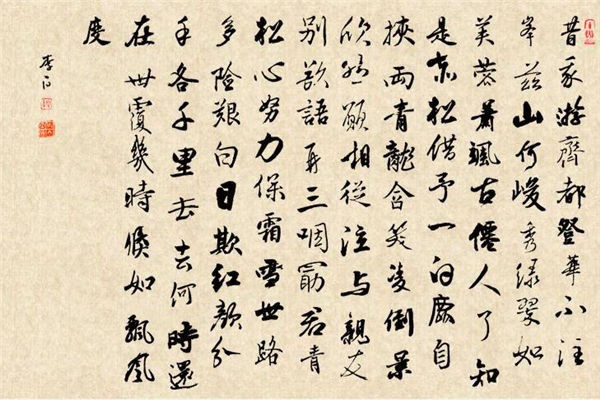 昔我游齊都登華不注
峯茲山何峻秀綠翠如
芙蓉蕭颯古僊人了知
是赤松借予一白鹿自
挾兩青龍含笑凌倒景
欣然願相從泣與親友
别欲語再三咽勖君青
松心努力保霜雪世路
多險艱白日欺紅顔分
手各千里去去何時還
在世覆幾時倏如飄風
度
李白